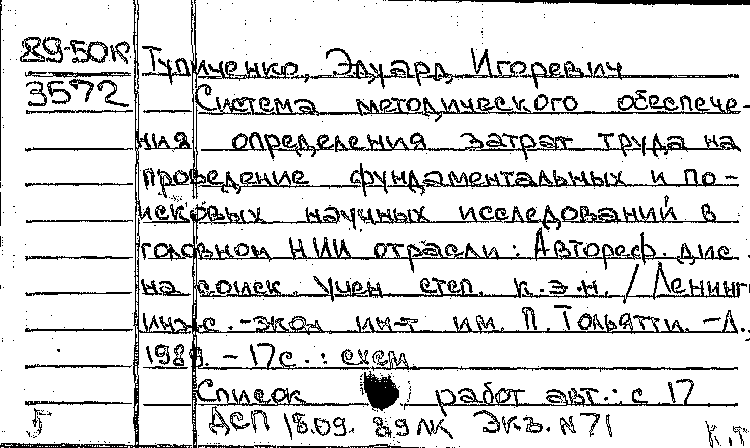 89-50к Тупиченко, Эдуард Игоревич
3572 Система методического обеспече-
ния определения затрат труда на
проведение фундаментальных и по-
исковых научных исследований в
головном НИИ отрасли: Автореф. дис.
на соиск. учен степ. к.э.н. / Ленинг
инж.-экон ин-т им. П. Тольятти. -Л.,
1989. - 17с. : схем
Список работ авт.: с 17
5 ДСП 18.09. 89 ЛК Экз. N 71